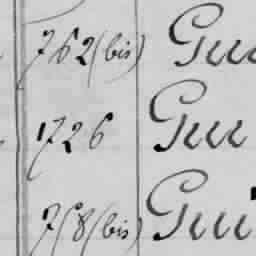 762 (bis) Gui
1726 Gui
758 (bis) Gui